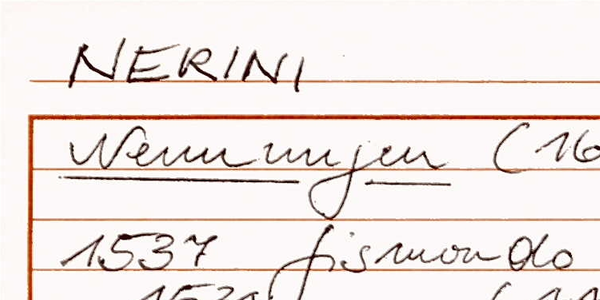 NERINI
Nennungen (16
1537 Gismondo